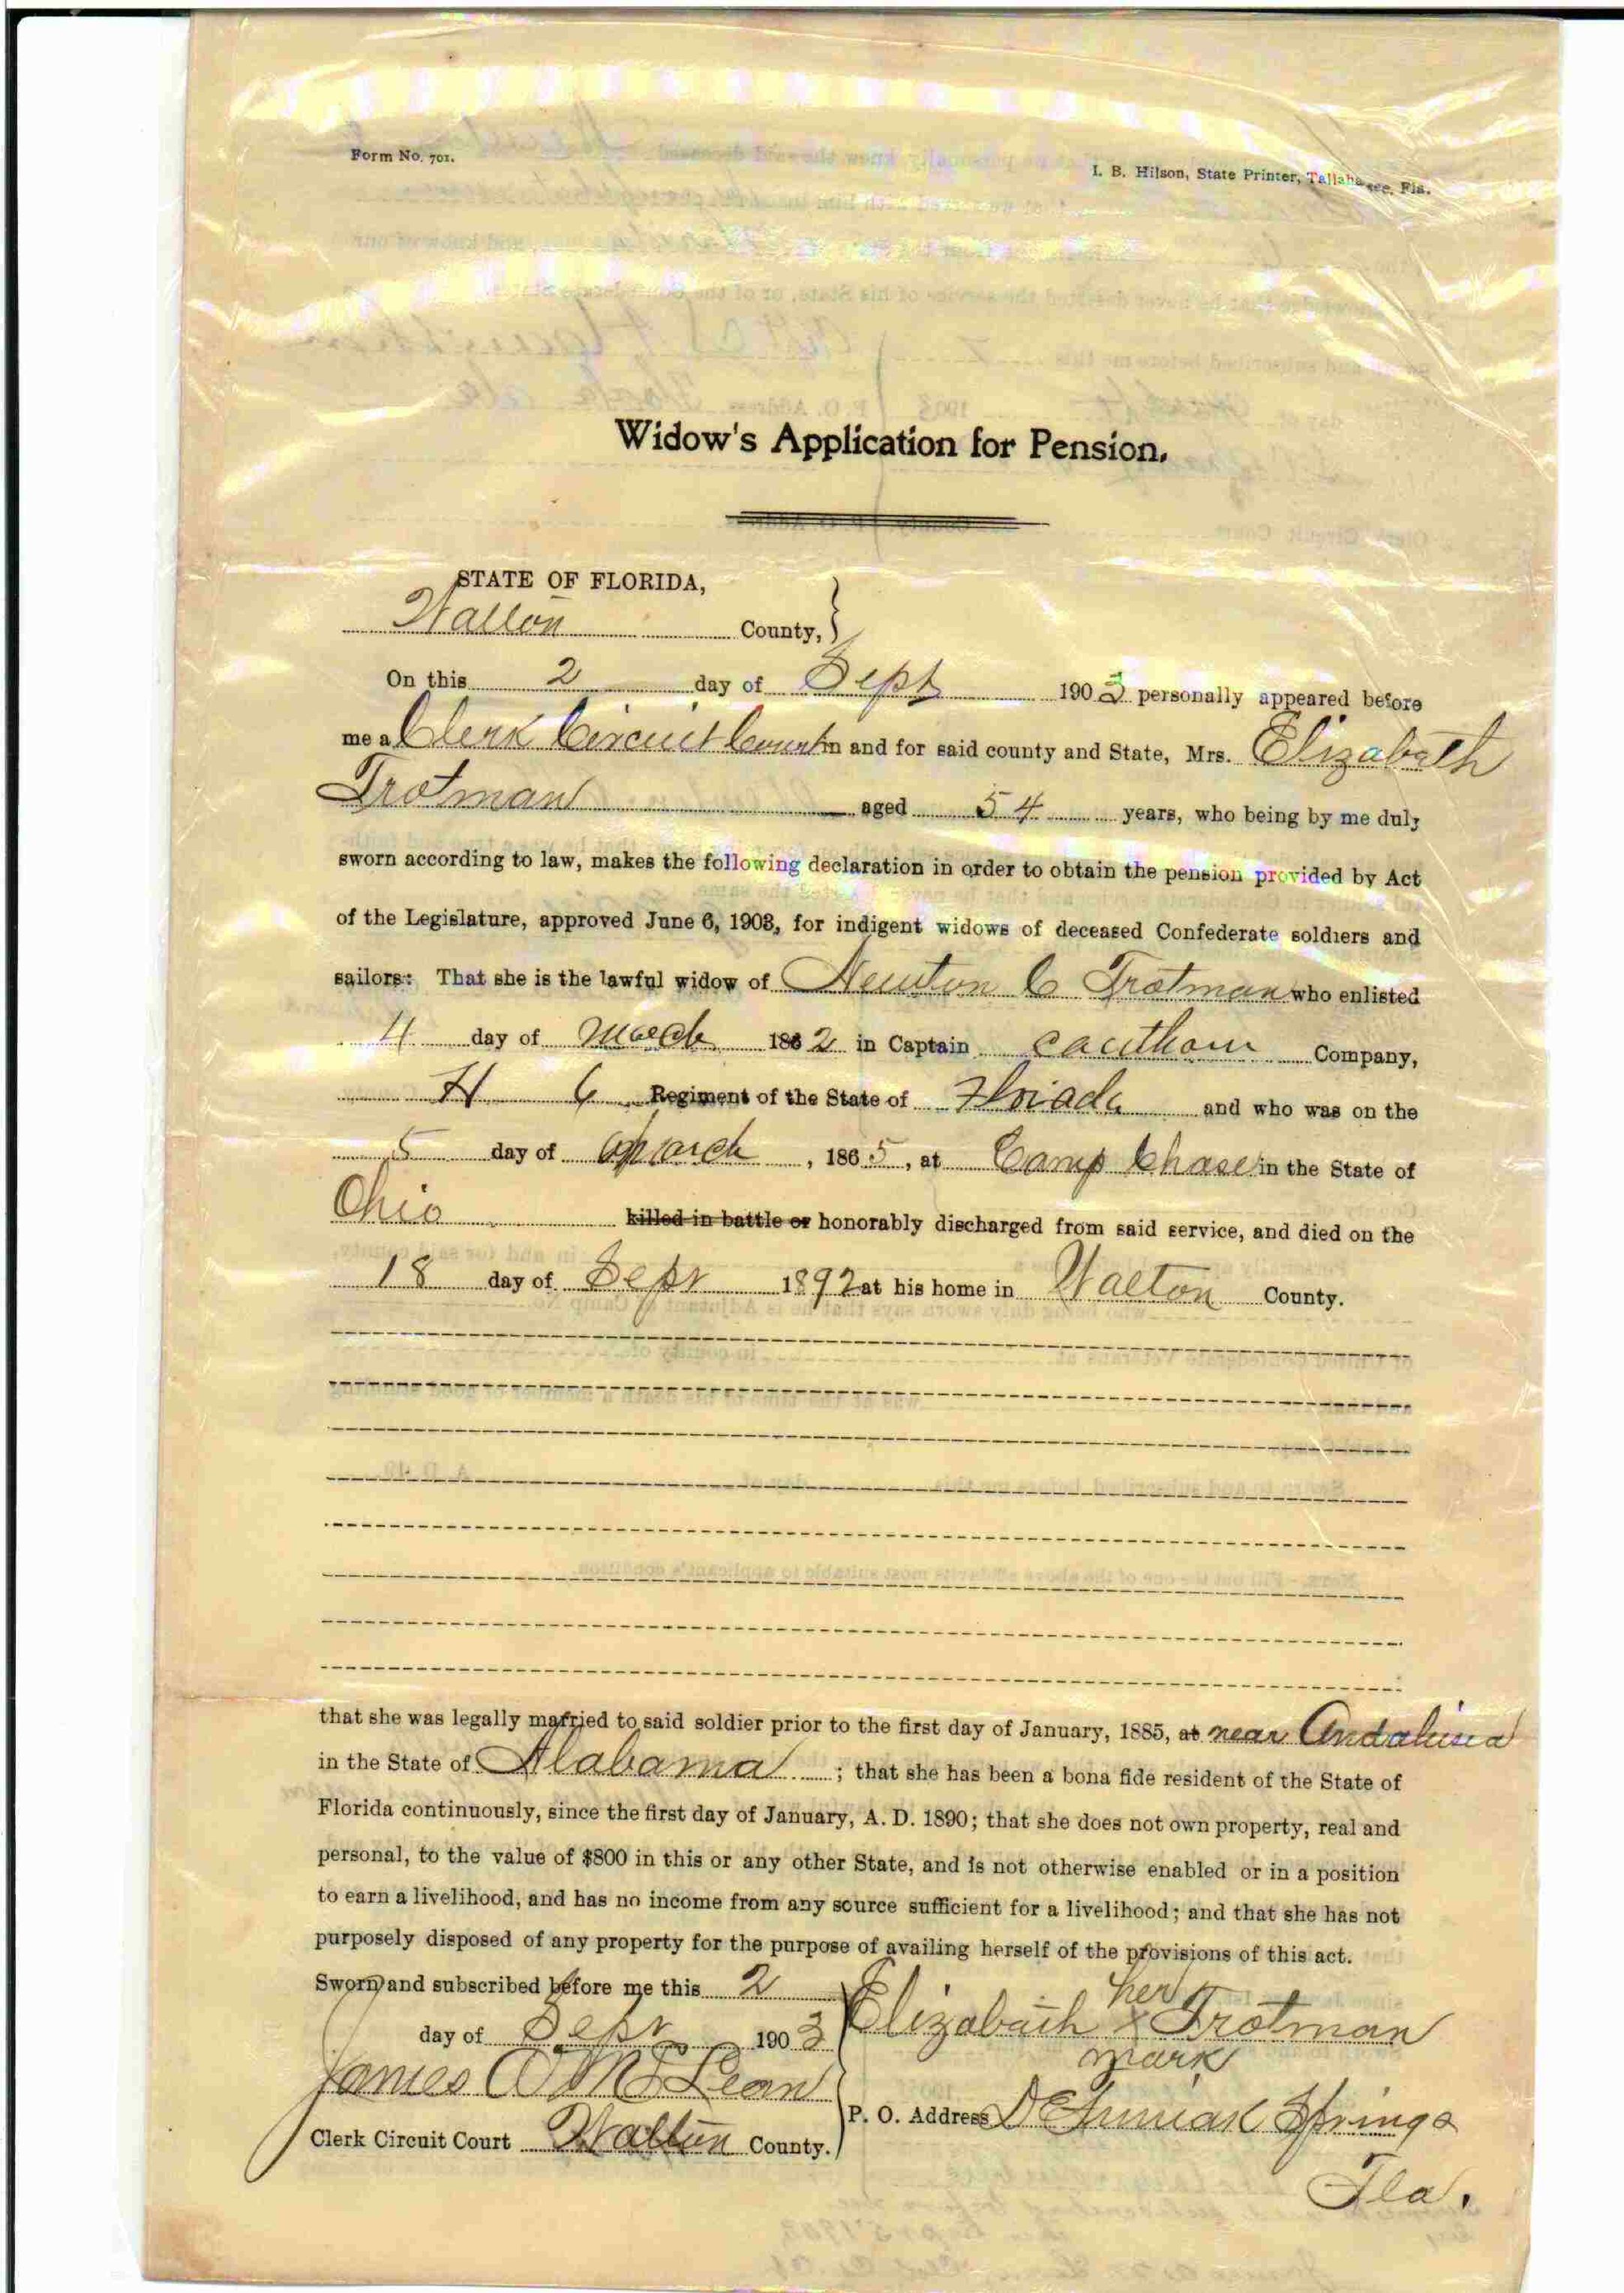 Form No. 701.
I. B. Hilson, State Printer, Tallahassee, Fla.
Widow's Application for Pension.
STATE OF FLORIDA,
Walton County,
On this 2 day of Sept 1903 personally appeared before
me a Clerk Circuit Court in and for said county and State, Mrs. Elizabeth
Trotman aged 54 years, who being by me duly
sworn according to law, makes the following declaration in order to obtain the pension provided by Act
of the Legislature, approved June 6, 1903, for indigent widows of deceased Confederate soldiers and
sailors: That she is the lawful widow of Newton C Trotman who enlisted
4 day of March 1862 in Captain Cawthorn Company,
H 6 Regiment of the State of Floriada and who was on the
5 day of March, 1865, at Camp Chase in the State of
Ohio killed in battle or honorably discharged from said service, and died on the
18 day of Sept 1892 at his home in Walton County.
that she was legally married to said soldier prior to the first day of January, 1885, at near Andalusia
in the State of Alabama; that she has been a bona fide resident of the State of
Florida continuously, since the first day of January, A. D. 1890; that she does not own property, real and
personal, to the value of $800 in this or any other State, and is not otherwise enabled or in a position
to earn a livelihood, and has no income from any source sufficient for a livelihood; and that she has not
purposely disposed of any property for the purpose of availing herself of the provisions of this act.
Sworn and subscribed before me this 2
day of Sept 1903
James A McLean
Clerk Circuit Court Walton County.
her
Elizabeth x Trotman
mark
P. O. Address DeFuniak Springs
Fla.